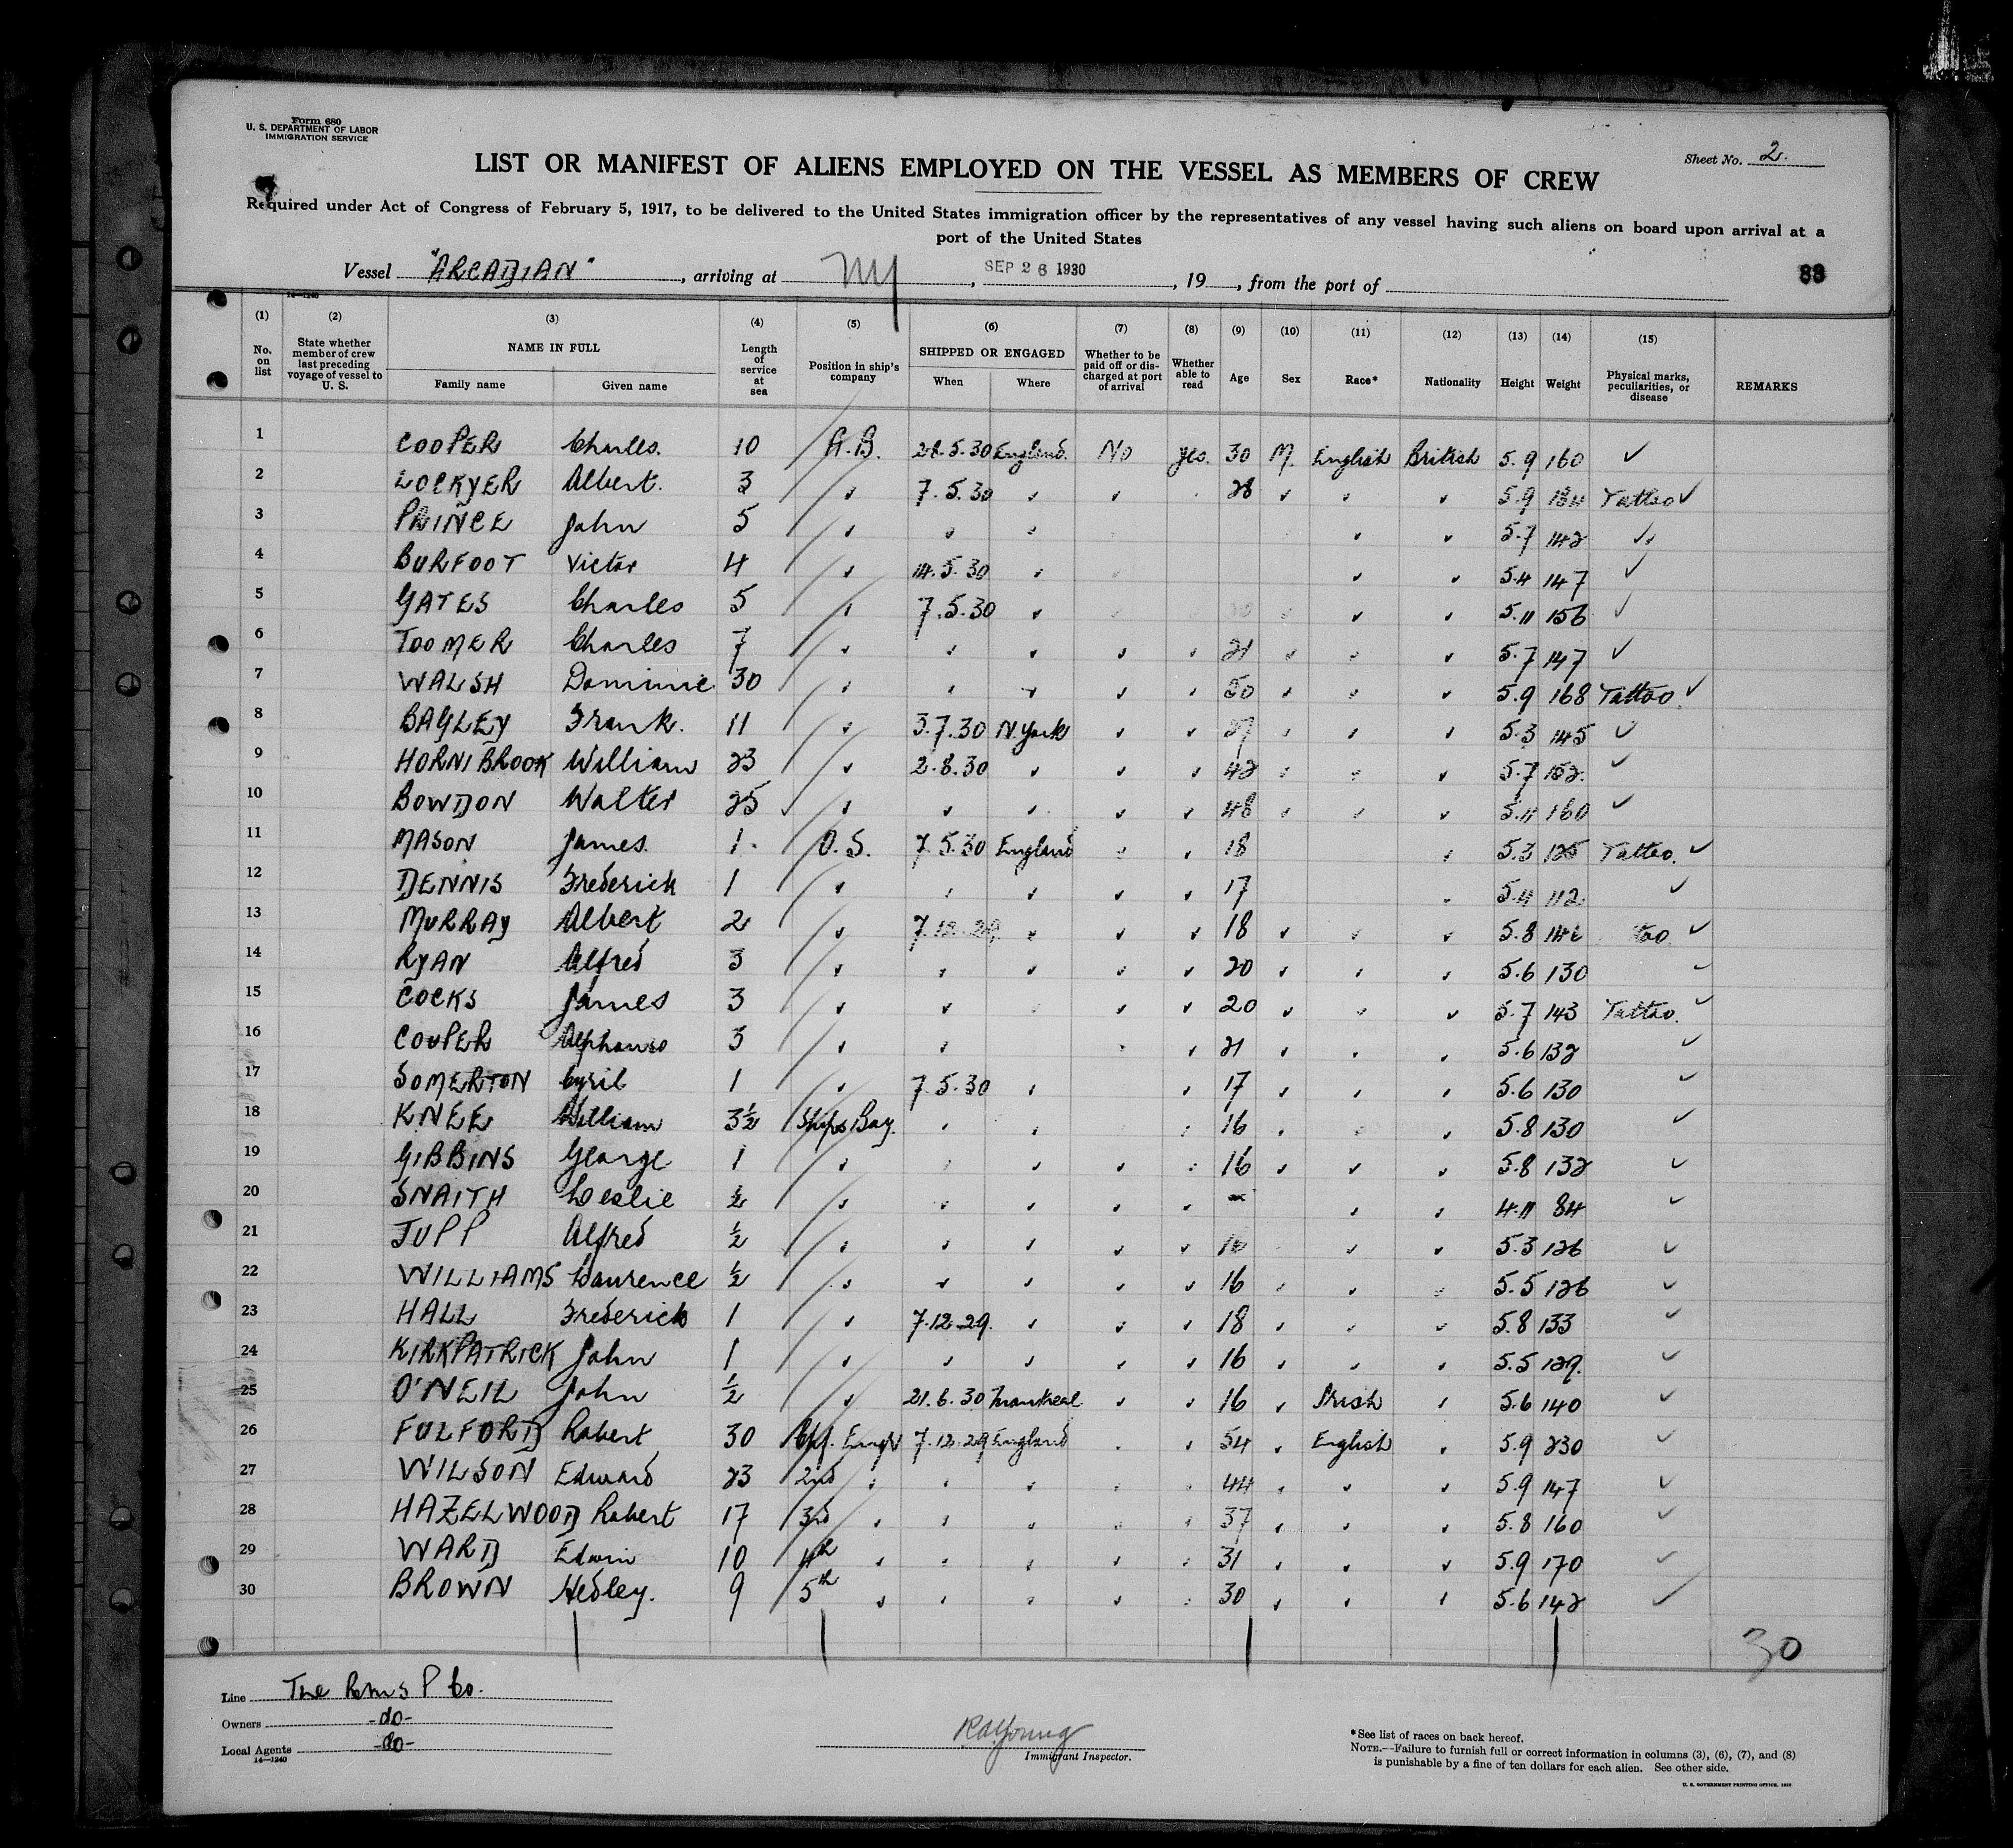 Form 680
U. S. DEPARTMENT OF LABOR
IMMIGRATION SERVICE
Sheet No. 2.
LIST OR MANIFEST OF ALIENS EMPLOYED ON THE VESSEL AS MEMBERS OF CREW
Required under Act of Congress of February 5, 1917, to be delivered to the United States immigration officer by the representatives of any vessel having such aliens on board upon arrival at a
port of the United States
Vessel "ARCADIAN", arriving at NY, SEP 26 1930, 19, from the port of
88
14—1240
(1) (2) (3) (4) (5) (6) (7) (8) (9) (10) (11) (12) (13) (14) (15)
No. on list
State whether member of crew last preceding voyage of vessel to U. S.
NAME IN FULL
Family name Given name
Length of service at sea
Position in ship's company
SHIPPED OR ENGAGED
When Where
Whether to be paid off or discharged at port of arrival
Whether able to read
Age
Sex
Race*
Nationality
Height
Weight
Physical marks, peculiarities, or disease
REMARKS
1 COOPER Charles. 10 A.B. 28.5.30 England. No yes. 30 M. English British 5.9 160 ✓
2 LOCKYER Albert. 3 " 7.5.30 " " 28 " " " 5.9 184 Tattoo ✓
3 PRINCE John 5 " " " " " 5.7 142 ✓
4 BURFOOT Victor 4 " 14.5.30 " " " 5.4 147 ✓
5 GATES Charles 5 " 7.5.30 " " " 5.11 156 ✓
6 TOOMER Charles 7 " " " " " 21 " " " 5.7 147 ✓
7 WALSH Dominic 30 " " " " " 50 " " " 5.9 168 Tattoo. ✓
8 BAGLEY Frank. 11 " 3.7.30 N. York " " 27 " " " 5.3 145 ✓
9 HORNIBROOK William 23 " 2.8.30 " " " 42 " " " 5.7 152. ✓
10 BOWDON Walter 25 " " " " " 48 " " " 5.11 160 ✓
11 MASON James. 1 O.S. 7.5.30 England " " 18 " 5.3 125 Tattoo. ✓
12 DENNIS Frederick 1 " " " " " 17 " 5.4 112 ✓
13 MURRAY Albert 2 " 7.12.29 " " " 18 " " " 5.8 ✓
14 RYAN Alfred 3 " " " " " 20 " " " 5.6 130 ✓
15 COCKS James 3 " " " " " 20 " " " 5.7 143 Tattoo. ✓
16 COUPER Alphonso 3 " " " " 21 " " " 5.6 132 ✓
17 SOMERTON Cyril 1 " 7.5.30 " " 17 " " " 5.6 130 ✓
18 KNEE William 3½ Ships Boy. " " " 16 " " " 5.8 130 ✓
19 GIBBINS George 1 " " " " " 16 " " " 5.8 132 ✓
20 SNAITH Leslie ½ " " " " " " " 4.11 84 ✓
21 JUPP Alfred ½ " " " " " 16 " " 5.3 126 ✓
22 WILLIAMS Laurence ½ " " " " " 16 " " " 5.5 126 ✓
23 HALL Frederick 1 " 7.12.29. " " " 18 " " " 5.8 133 ✓
24 KIRKPATRICK John 1 " " " " " 16 " " " 5.5 129. ✓
25 O'NEIL John ½ " 21.6.30 Montreal " " 16 " Irish " 5.6 140 ✓
26 FULFORD Robert 30 Chf. Engr 7.12.29 England " " 54 " English " 5.9 230 ✓
27 WILSON Edward 23 2nd " " " " " 44 " " " 5.9 147 ✓
28 HAZELWOOD Robert 17 3rd " " " " " 37 " " " 5.8 160 ✓
29 WARD Edwin 10 4th " " " " " 31 " " " 5.9 170 ✓
30 BROWN Hedley. 9 5th " " " " " 30 " " " 5.6 142 ✓
30
Line The R.M.S P Co.
Owners -do-
Local Agents -do-
14—1240
Immigrant Inspector.
*See list of races on back hereof.
NOTE.—Failure to furnish full or correct information in columns (3), (6), (7), and (8)
is punishable by a fine of ten dollars for each alien. See other side.